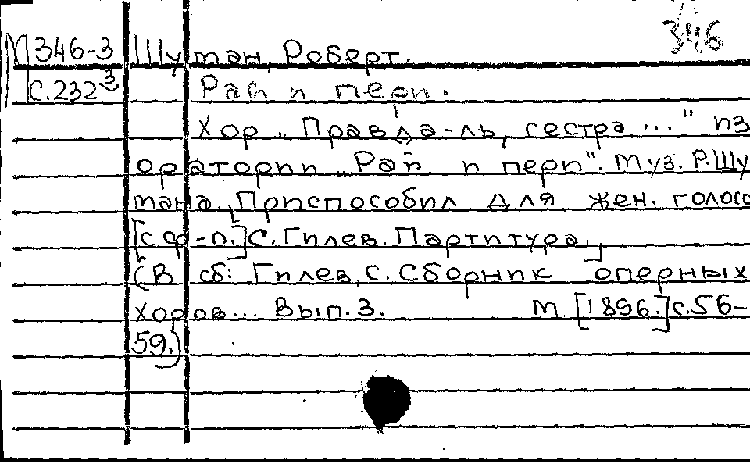 346
М 346-3 Шуман, Роберт.
С.232³ Рай и пери.
Хор „Правда-ль, сестра..." из
оратории „Рай и пери". Муз. Р.Шу
мана. Приспособил для жен. голосо
[с ф-п.] С. Гилев. Партитура
(В сб: Гилев, С. Сборник оперных
хоров... Вып. 3. М [1896.] с.56-
59.)